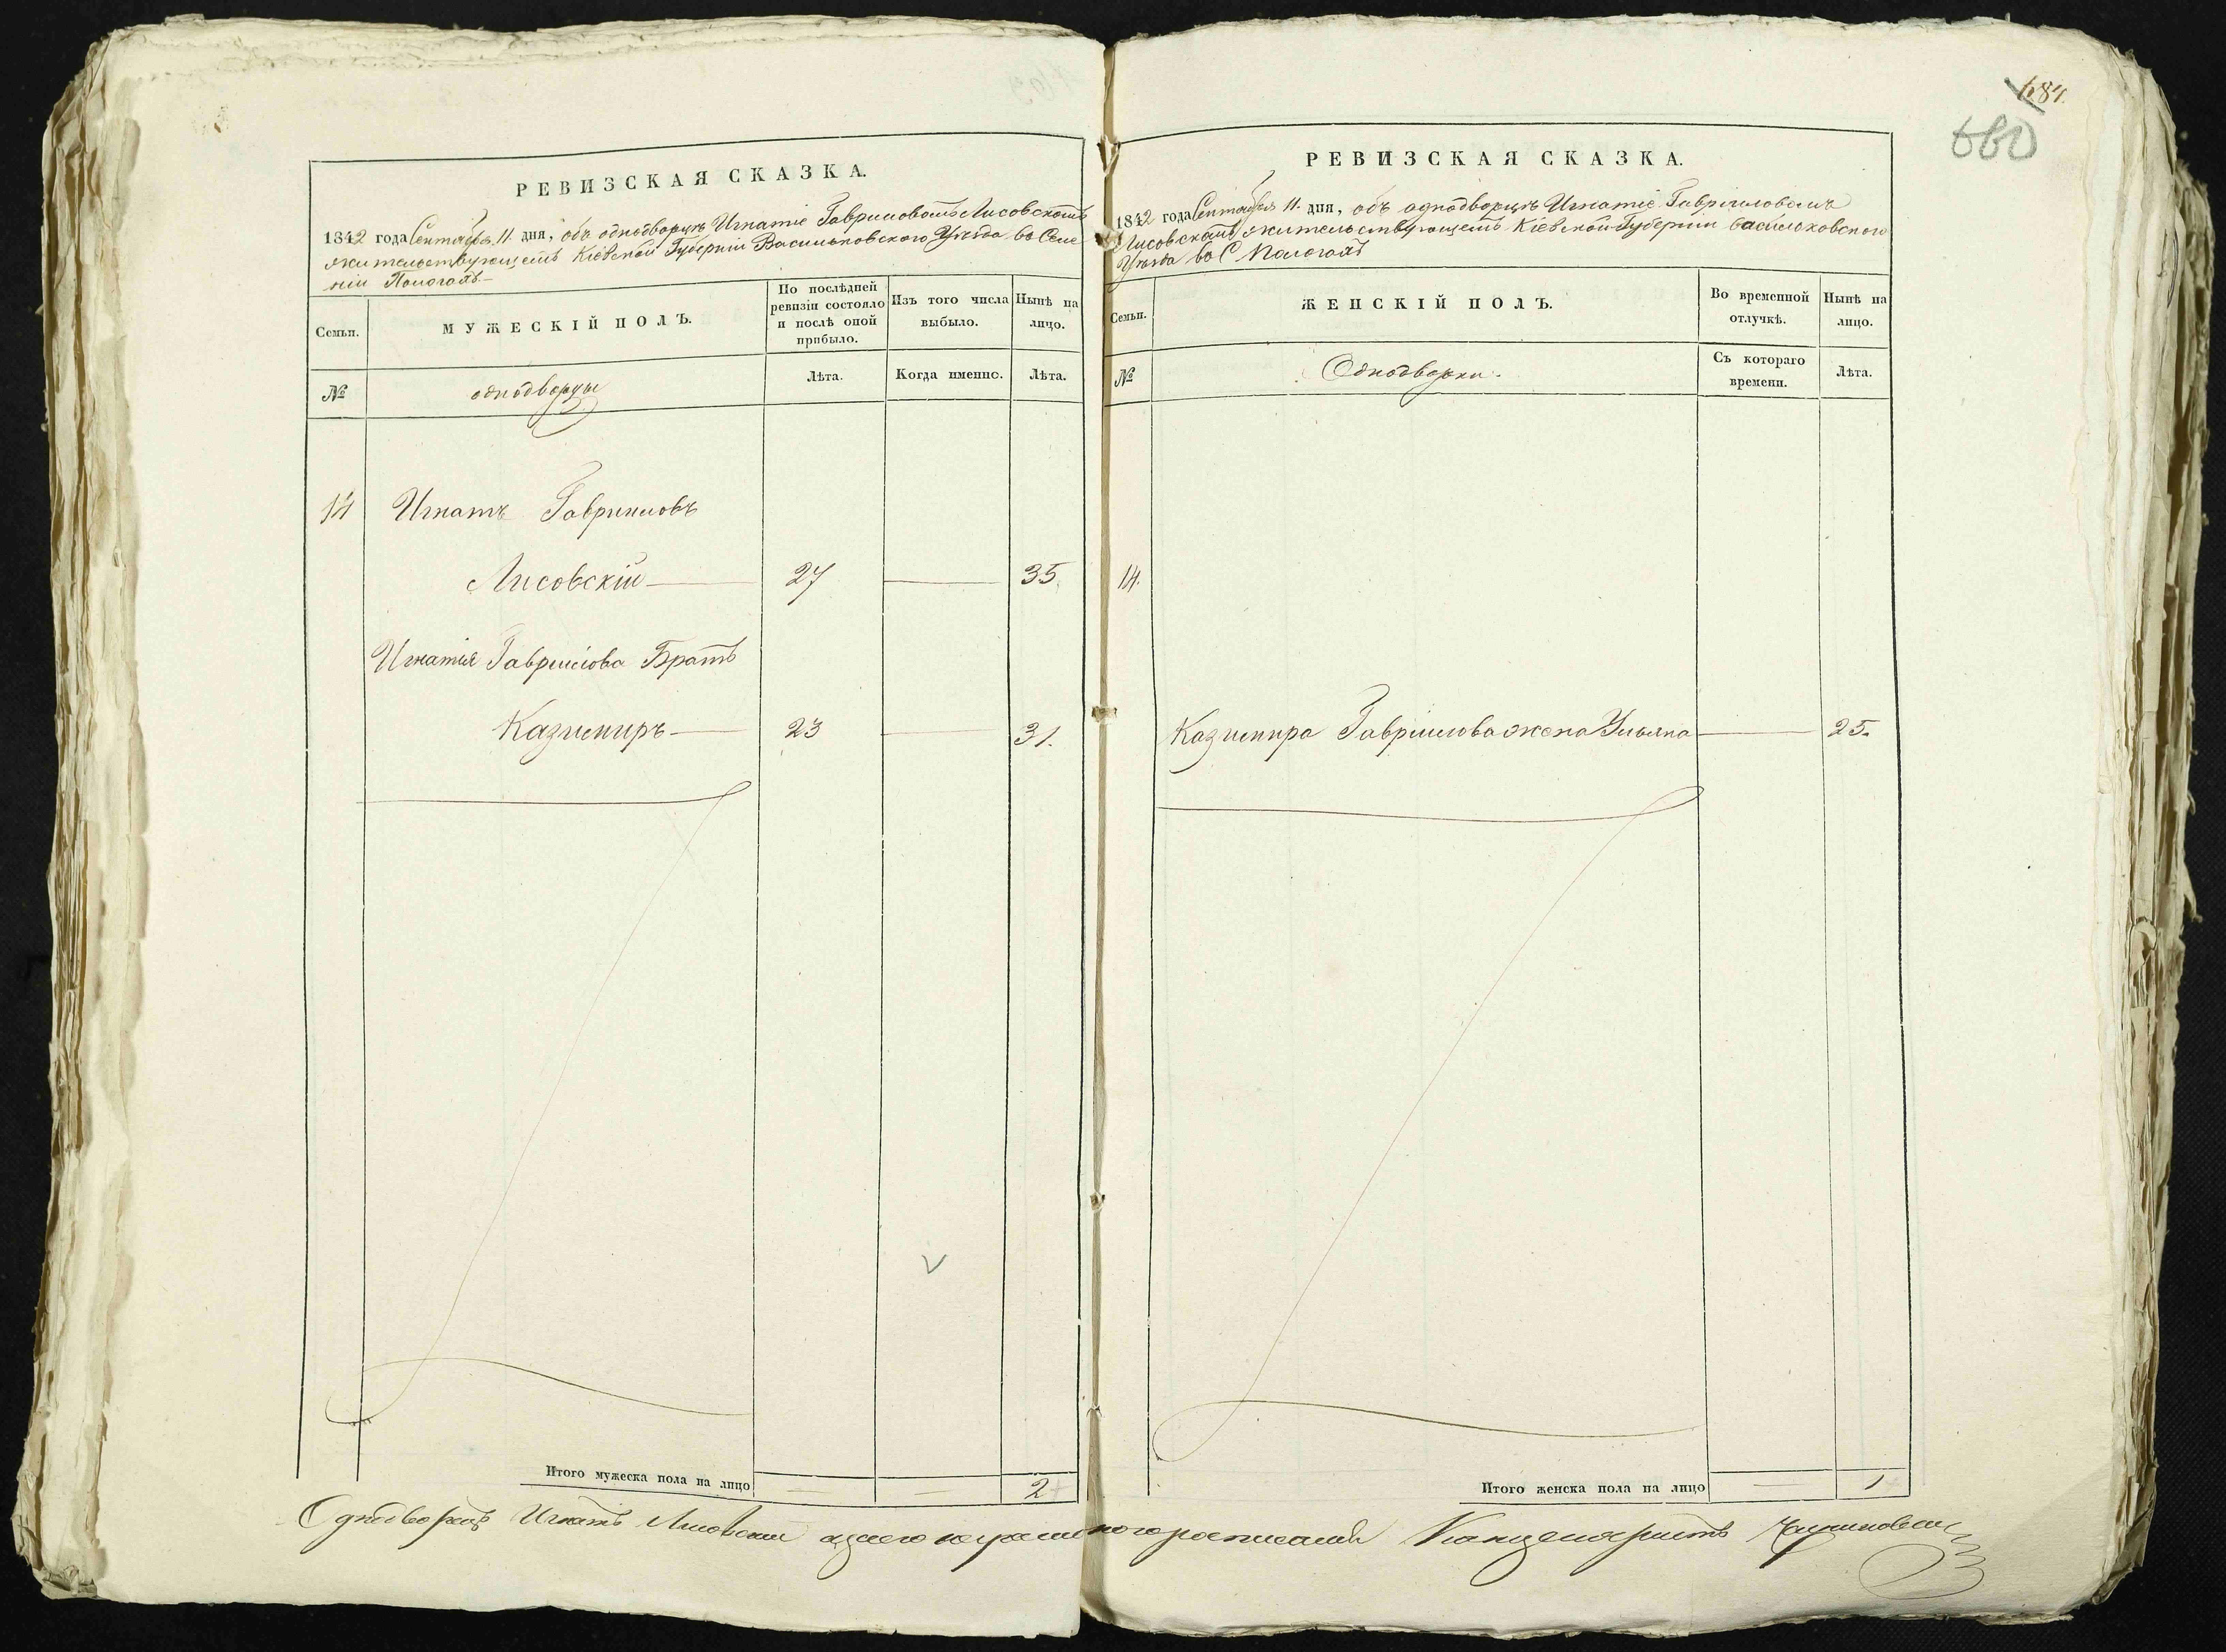 РЕВИЗСКАЯ СКАЗКА.
1842 года Сентября 11 дня, объ однодворцѣ Игнатіе Гавриловомъ Лисовскомъ
жительствующемъ Кіевской Губерніи Васильковскаго Уѣзда во Селе
ніи Пологахъ
Семьи.
МУЖЕСКІЙ ПОЛЪ.
По послѣдней ревизіи состояло и послѣ оной прибыло.
Изъ того числа выбыло.
Нынѣ на лицо.
№
однодворцы
Лѣта.
Когда именно.
Лѣта.
14 Игнатъ Гавриловъ
Лисовскій 27 35
Игнатія Гаврилова Братъ
Казимиръ 23 31.
Итого мужеска пола на лицо 2
684.
660
РЕВИЗСКАЯ СКАЗКА.
1842 года Сентября 11. дня, объ однодворцѣ Игнатіе Гавріиловомъ
Лисовскомъ жительствующемъ Кіевской Губерніи Васильковского
Уѣзда во С Пологахъ
Семьи.
ЖЕНСКІЙ ПОЛЪ.
Во временной отлучкѣ.
Нынѣ на лицо.
№
Однодворки.
Съ котораго времени.
Лѣта.
14.
Казимира Гавріилова жена Ульяна 25.
Итого женска пола на лицо 1
Однодворецъ Игнатъ Лисовскій Канцеляристъ